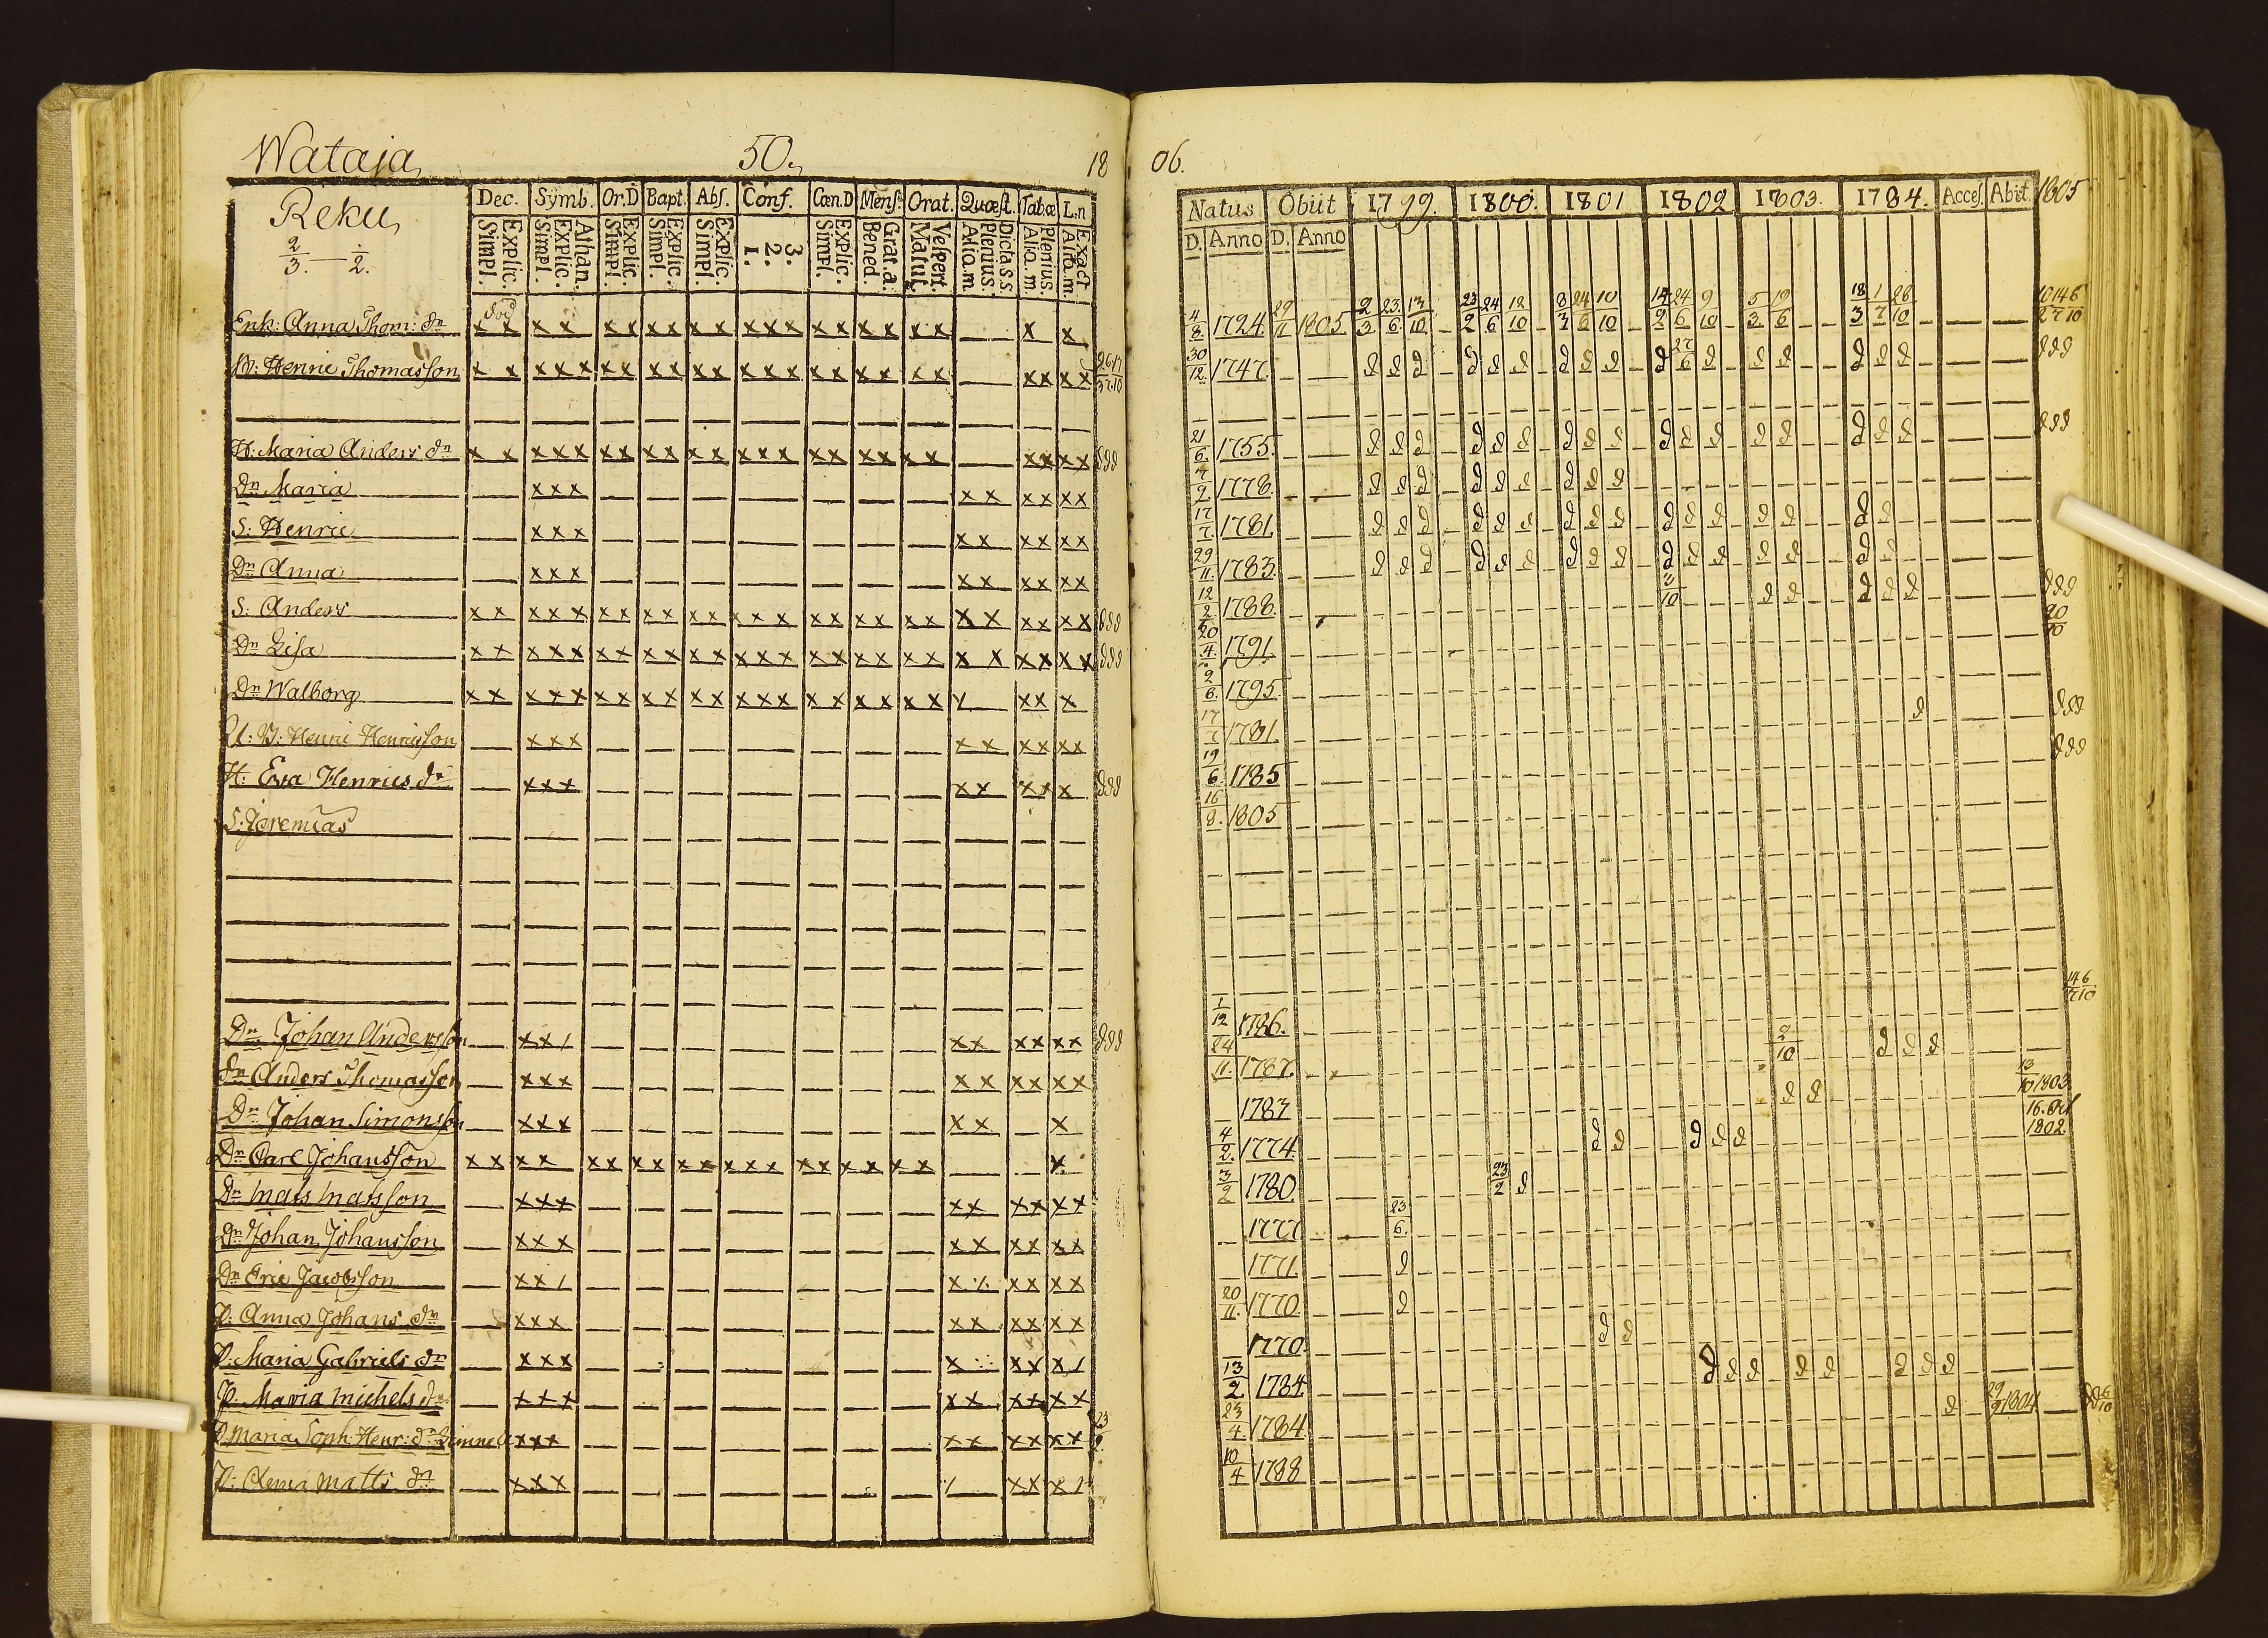 Wataja 50. 18
Reku
2/3. — 1/2.
Dec. Symb. Or.D Bapt. Abs. Conf. Cœn.D Mens. Orat. Quæst. Tabœ L.n
Explic. Simpl. Athan. Explic. Simpl. Explic. Simpl. Explic. Simpl. Explic. Simpl. 3. 2. 1. Explic. Simpl. Grat.a. Bened. Vespert. Matut. Dicta S.S. Plenius. Alio.m. Plenius. Alio.m. Exact Alio.m.
Enk: Anna Thom: dr död x x x x x x x x x x x x x x x x x x x x x x
B: Henric Thomasson x x x x x x x x x x x x x x x x x x x x x x x x
H: Maria Anders dr x x x x x x x x x x x x x x x x x x x x x x x x
Dr Maria x x x x x x x x x
S: Henric x x x x x x x x x
Dr Anna x x x x x x x x x
S: Anders x x x x x x x x x x x x x x x x x x x x x x x x x x
Dr Lisa x x x x x x x x x x x x x x x x x x x x x x x x x x
Dr Walborg x x x x x x x x x x x x x x x x x x x x x x x
U: B: Henric Henricsson x x x x x x x x x
H: Eva Henrics dr x x x x x x x x
S: Jeremias
Dr Johan Andersson x x / x x x x x x
Dr Anders Thomasson x x x x x x x x x
Dr Johan Simonsson x x x x x x
Dr Carl Johansson x x x x x x x x x x x x x x x x x x x x
Dr Mats Matsson x x x x x x x x x
Dr Johan Johansson x x x x x x x x x
Dr Eric Jacobsson x x / x x x x x
P: Anna Johans dr x x x x x x x x x
P: Maria Gabriels dr x x x x x x x /
P: Maria Michels dr x x x x x x x x x
P: Maria Soph: Henr: dr x x x x x x x x x
P: Anna Matts dr x x x / x x x
06.
Natus. Obiit 1799. 1800. 1801 1802 1803. 1784. Acces. Abit. 1805
D. Anno D. Anno
4/8 1724 29/11 1805 2/3 23/6 13/10 23/2 24/6 12/10 8/3 24/6 10/10 14/2 24/6 9/10 5/3 19/6 18/3 1/7 28/10
30/12 1747
21/6 1755
1778
17/7 1781
29/11 1783
12/2 1788 3/10
20/4 1791 20/10
2/6 1795
17/7 1781
19/6 1785
16/8 1805
1/12 1786
24/11 1787 2/10
1783 13/10 1803
4/2 1774 16. Oct 1802
3/2 1780 23/2
1777 23/6
1771
20/11 1770
1770
13/2 1784
23/4 1784 1804
10/4 1788